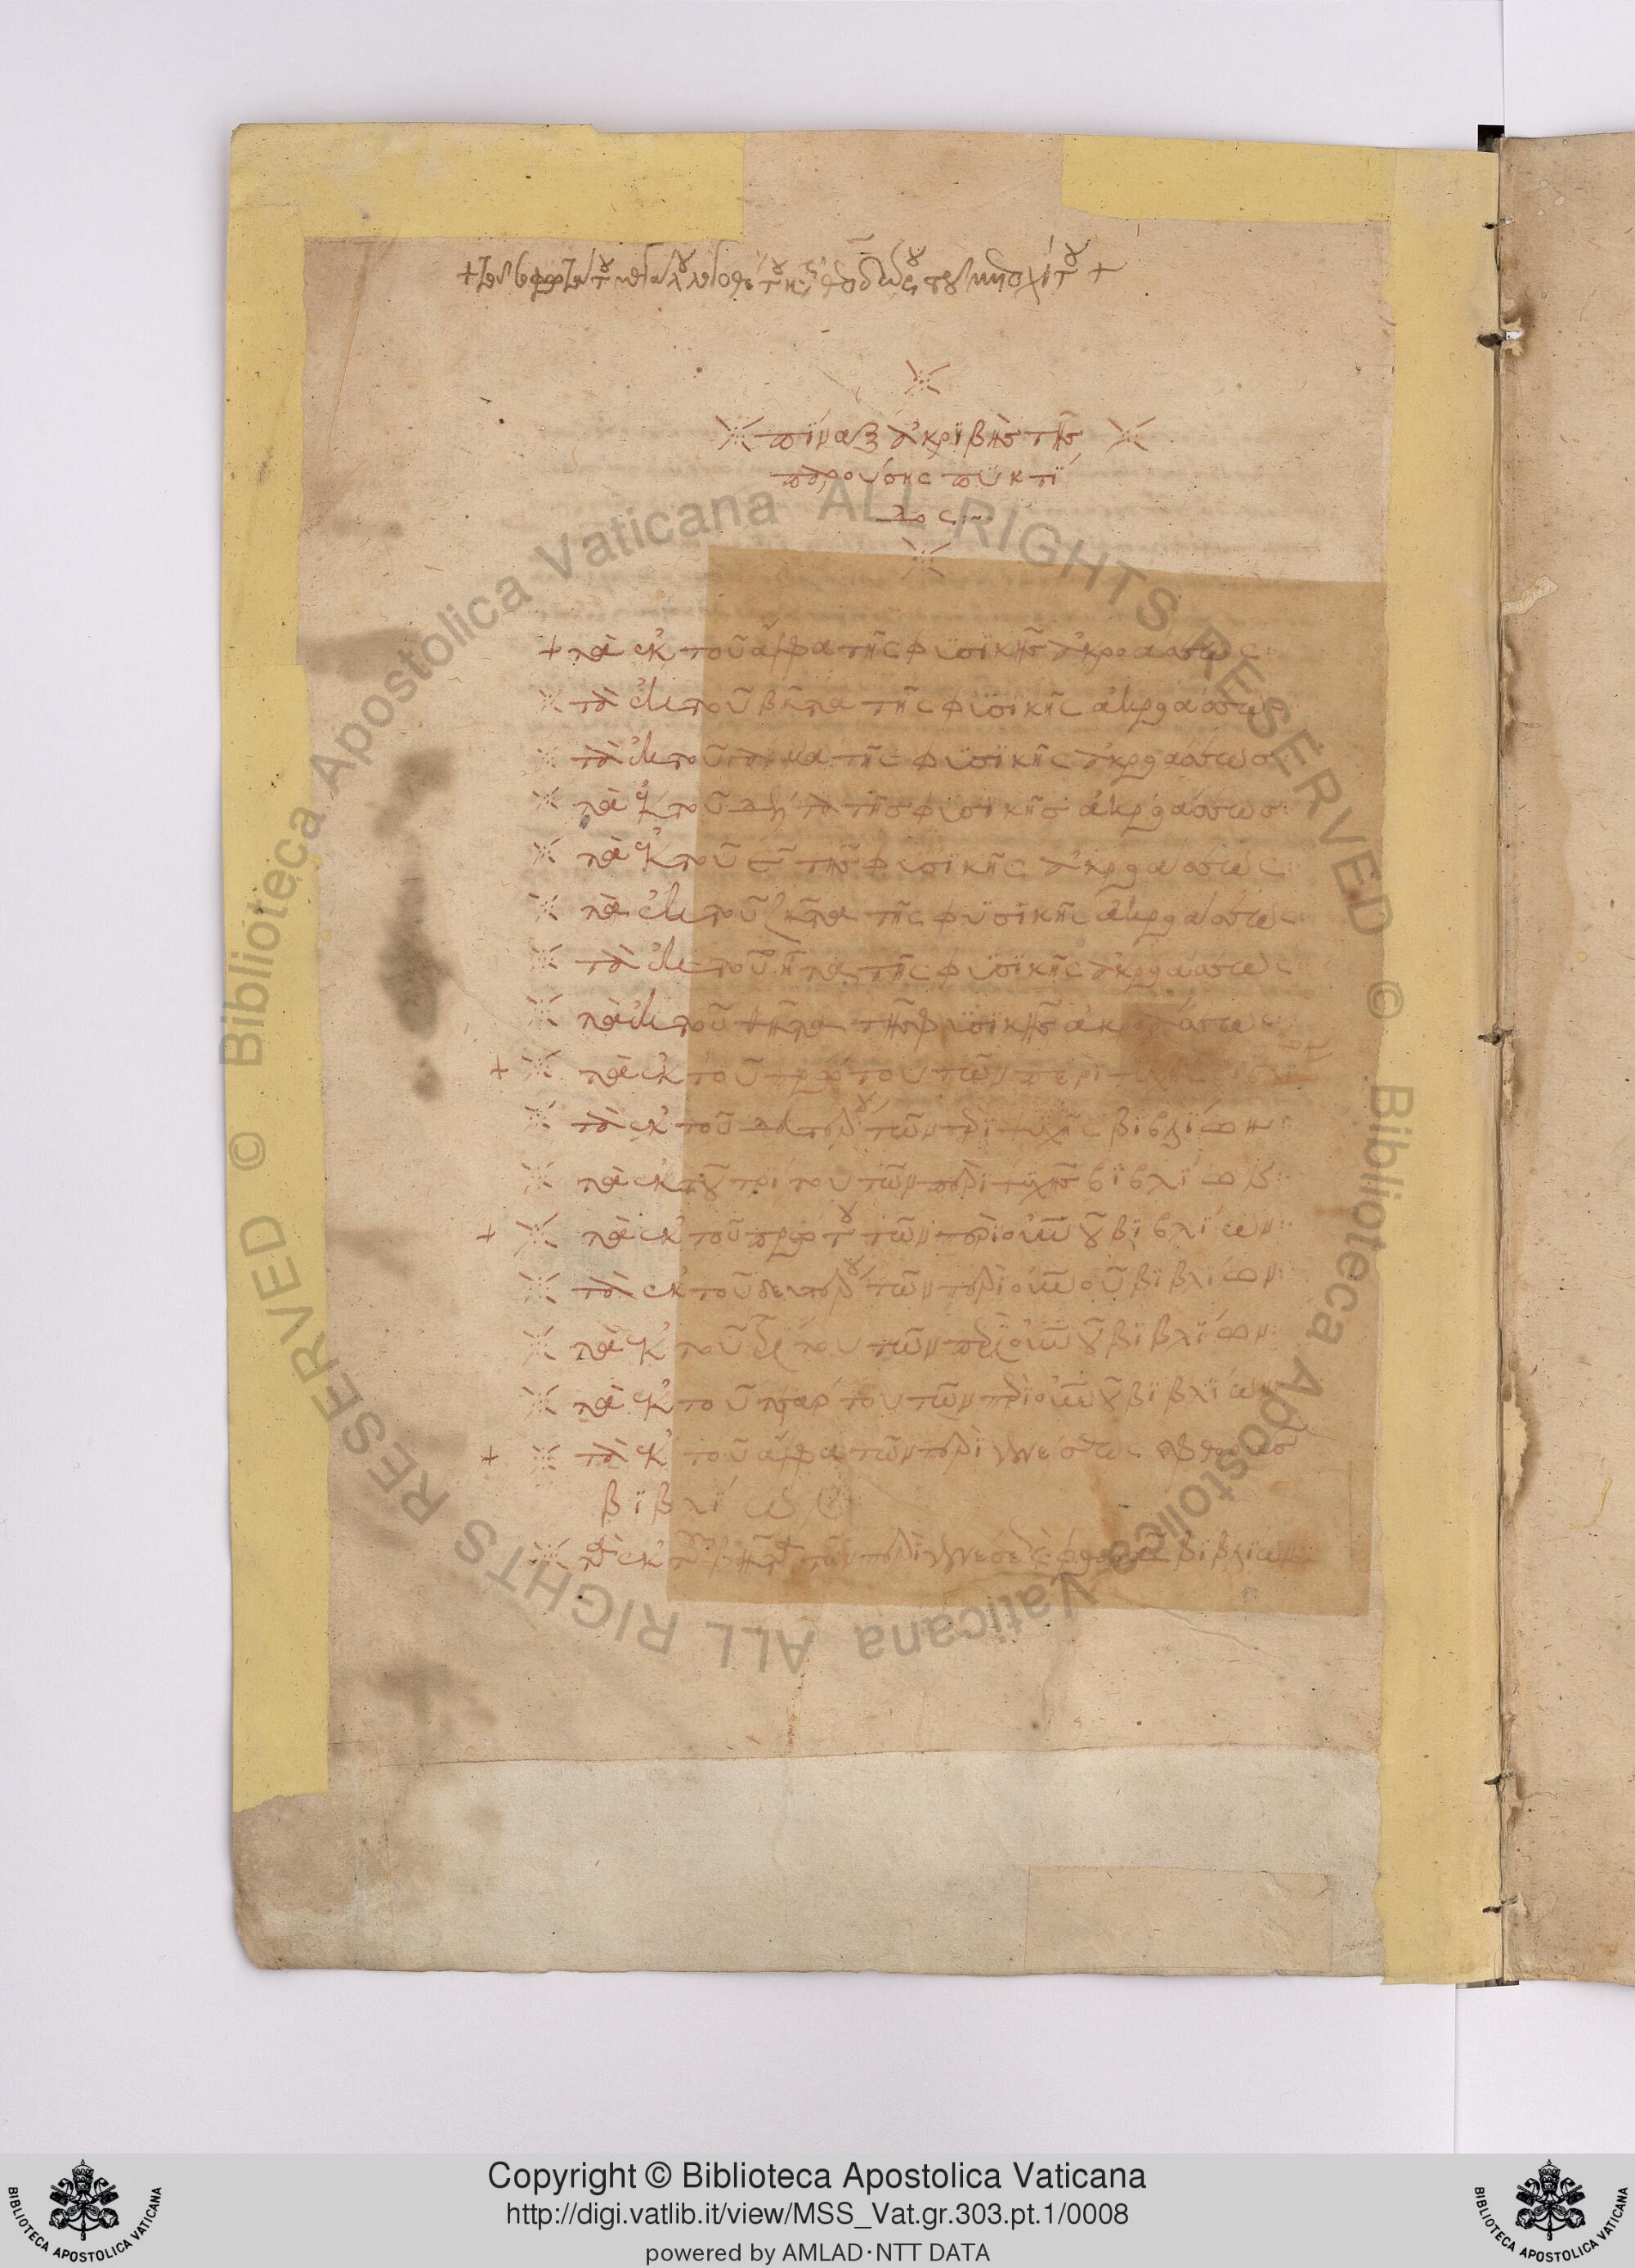 πίναξ ἀκριβὴς τῆς
παρούσης πυκτί
δος:~
+ τὰ ἐκ τοῦ ἄλφα τῆς φυσϊκῆς ἀκροάσεως:
τὰ ἐκ τοῦ βῆτα τῆς φυσϊκῆς ἀκροάσεως
τὰ ἐκ τοῦ γάμμα τῆς φυσϊκῆς ἀκροάσεως
τὰ ἐκ τοῦ δέλτα τῆς φυσϊκῆς ἀκροάσεως:
τὰ ἐκ τοῦ ε τῆς φυσϊκῆς ἀκροάσεως:
τὰ ἐκ τοῦ ζῆτα τῆς φυσϊκῆς ἀκροάσεως:
τὰ ἐκ τοῦ ἦτα τῆς φυσϊκῆς ἀκροάσεως
τὰ ἐκ τοῦ θῆτα τῆς φυσϊκῆς ἀκροάσεως
+ τὰ ἐκ τοῦ πρώτου τῶν περὶ ψυχῆς
τὰ ἐκ τοῦ δευτέρου τῶν περὶ ψυχῆς βϊβλίων:
τὰ ἐκ τοῦ τρίτου τῶν περὶ ψυχῆς βϊβλΐων:
+ τὰ ἐκ τοῦ πρώτου τῶν περὶ οὐρανοῦ βϊβλίων:
τὰ ἐκ τοῦ δευτέρου τῶν περὶ οὐρανοῦ βϊβλίων:
τὰ ἐκ τοῦ τρίτου τῶν περὶ οὐρανοῦ βϊβλΐων:
τὰ ἐκ τοῦ τετάρτου τῶν περὶ οὐρανοῦ βϊβλΐων
+ τὰ ἐκ τοῦ ἄλφα τῶν περὶ γενέσεως καὶ φθορᾶς
βϊβλΐων
τὰ ἐκ τοῦ βῆτα τῶν περὶ γενέσεως καὶ φθορᾶς βϊβλΐων
Copyright © Biblioteca Apostolica Vaticana
http://digi.vatlib.it/view/MSS_Vat.gr.303.pt.1/0008
powered by AMLAD·NTT DATA
BIBLIOTECA APOSTOLICA VATICANA
BIBLIOTECA APOSTOLICA VATICANA
© Biblioteca Apostolica Vaticana ALL RIGHTS RESERVED © Biblioteca Apostolica Vaticana ALL RIGHTS RESERVED